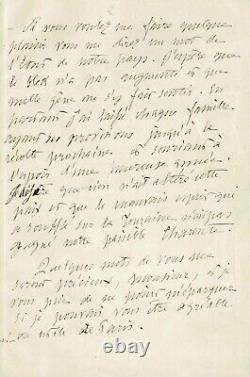 2
- Si vous voulez me faire quelque
plaisir vous me direz un mot de
l'état de notre pays. J'espère que
le bled n'a pas augmenté et que
nulle gêne ne s'y fait sentir. En
partant j'ai laissé chaque famille
ayant ses provisions jusqu'à la
récolte prochaine et souriant à
l'espoir d'une heureuse année.
que rien n'ait altéré cette
paix et que le mauvais esprit qui
a soufflé sur la Touraine n'ait pas
gagné notre paisible Charente.
Quelques mots de vous me
seront précieux, monsieur, et je
vous prie de ne point m'épargner
si je pouvais vous être agréable
ou utile de Paris.